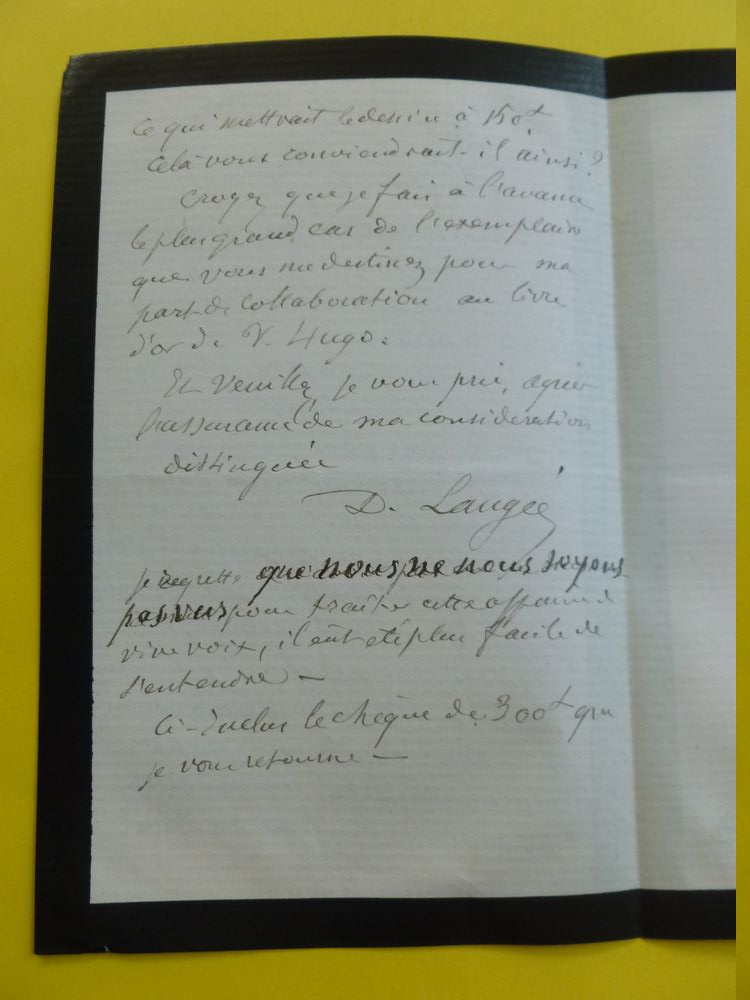 ce qui mettrait le dessin à 150f
Celà vous conviendrait-il ainsi ?
Croyez que je fais à l'avance
le plus grand cas de l'exemplaire
que vous me destinez pour ma
part de collaboration au livre
d'or de V. Hugo.
Et Veuillez, je vous prie, agréer
l'assurance de ma considération
distinguée
D. Laugée
je regrette que nous ne nous soyons
pas vus pour traiter cette affaire de
vive voix, il eût été plus facile de
s'entendre —
Ci-Inclus le chèque de 300f que
je vous retourne —